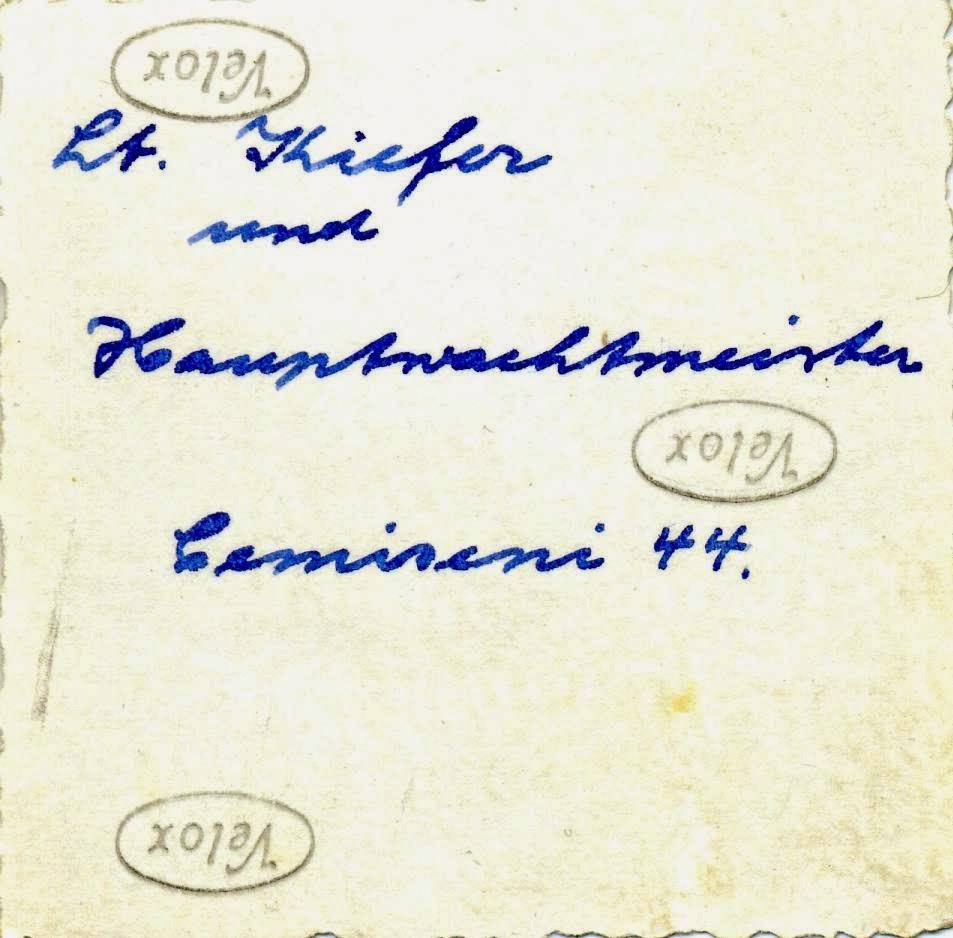 Velox
Lt. Kiefer
und
Hauptwachtmeister
Velox
Cemiseni 44.
Velox